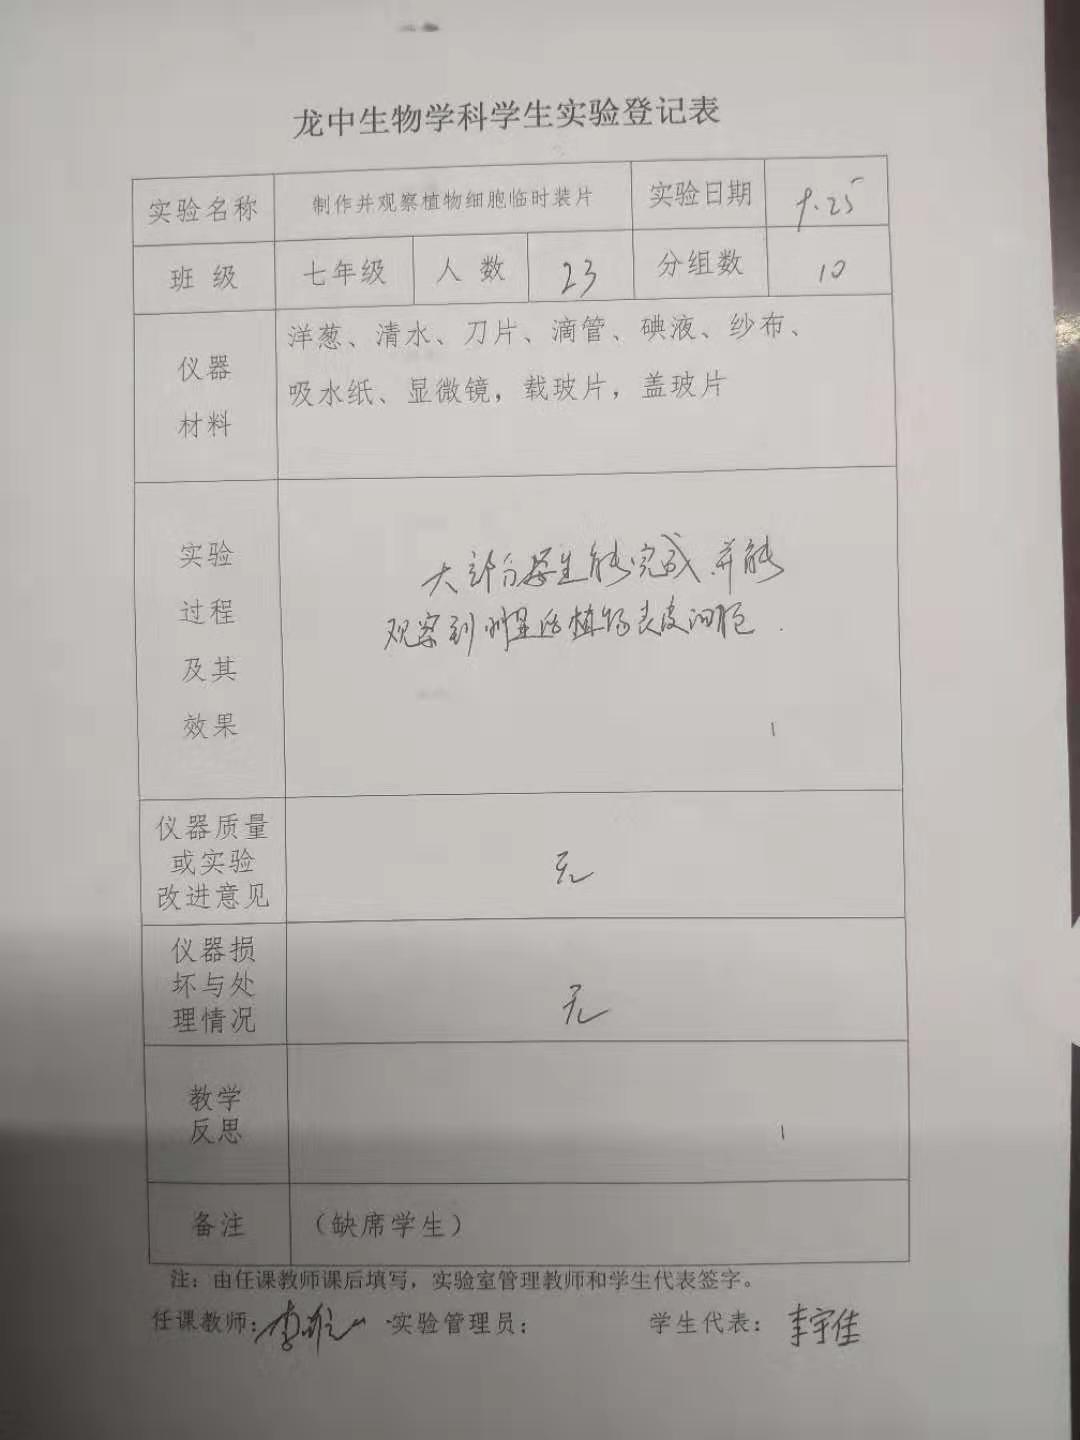 龙中生物学科学生实验登记表
实验名称 制作并观察植物细胞临时装片 实验日期 9.25
班 级 七年级 人 数 23 分组数 10
仪器
材料
洋葱、清水、刀片、滴管、碘液、纱布、
吸水纸、显微镜，载玻片，盖玻片
实验
过程
及其
效果
大部分学生能完成 并能
观察到明显的植物表皮细胞.
仪器质量
或实验
改进意见
无
仪器损
坏与处
理情况
无
教学
反思
备注 （缺席学生）
注：由任课教师课后填写，实验室管理教师和学生代表签字。
任课教师: 李 实验管理员: 学生代表: 李宇佳